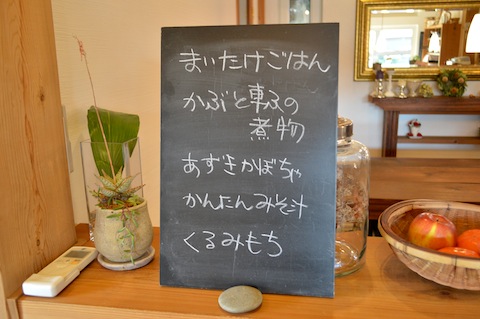 まいたけごはん
かぶと車ふの
煮物
あずきかぼちゃ
かんたんみそ汁
くるみもち